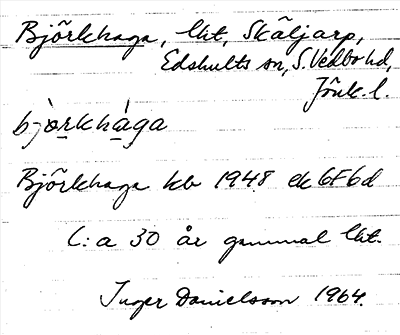 Björkhaga, lht, Skäljarp,
Edshults sn, S. Vedbo hd,
Jönk. l.
bjœrkhága
Björkhaga kb 1948 ek 6F6d
C:a 30 år gammal lht.
Inger Danielsson 1964.